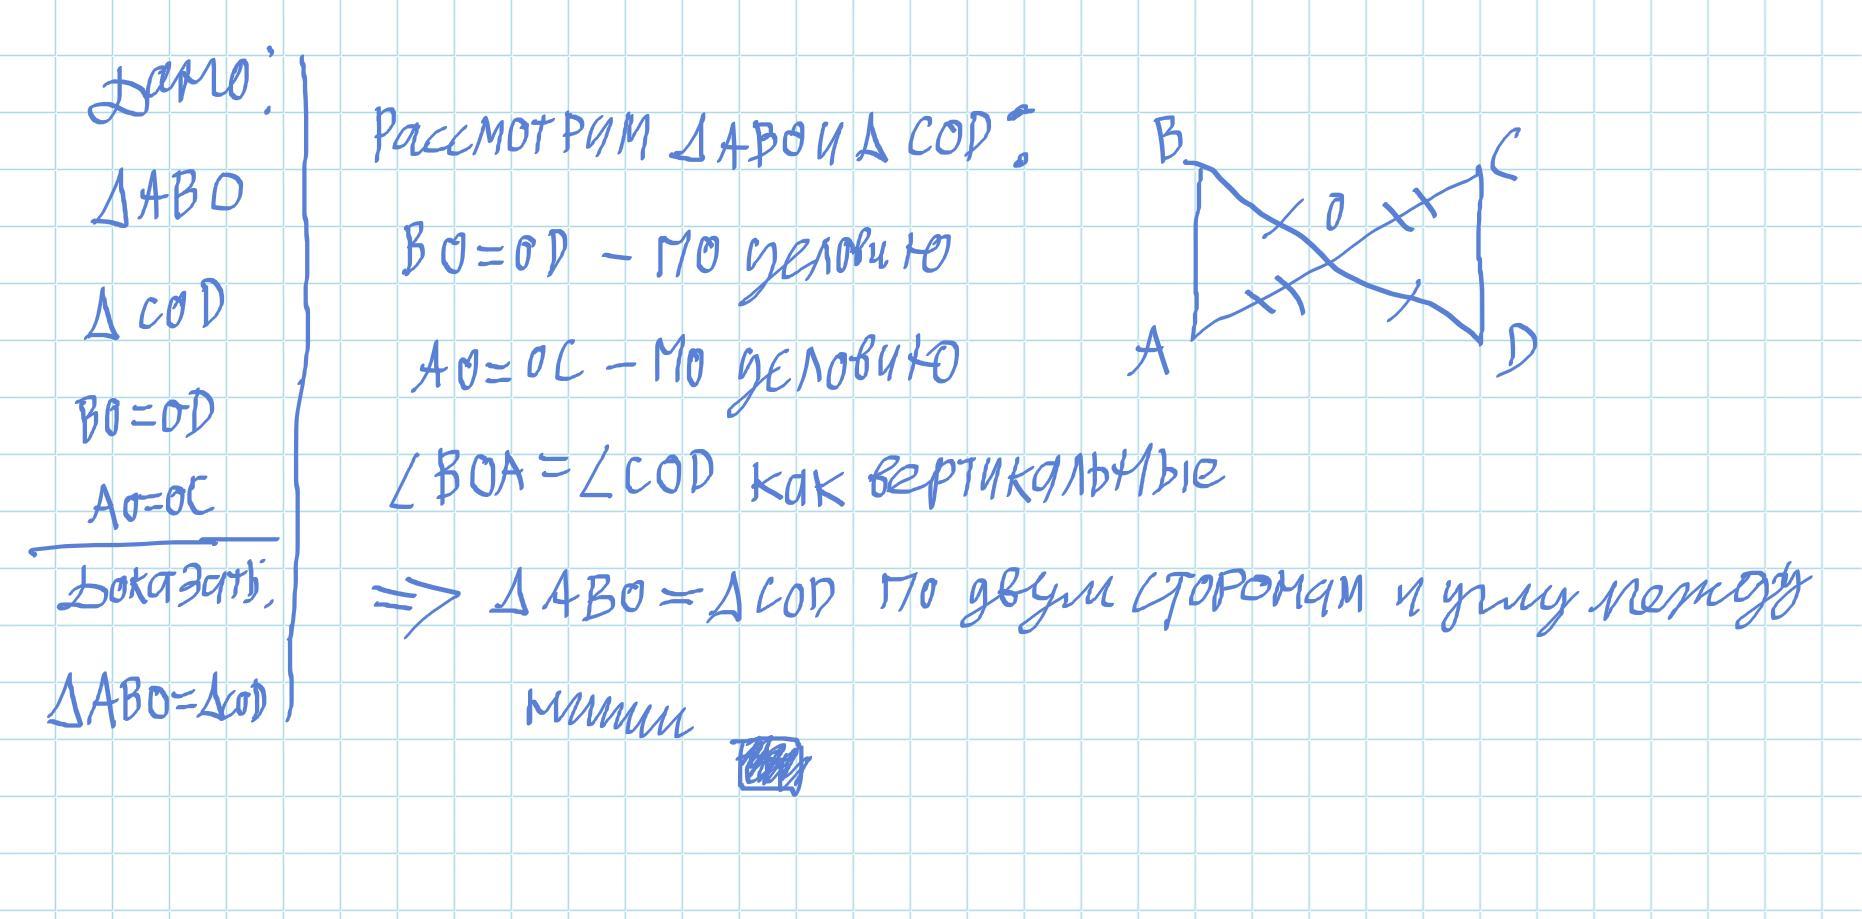 Дано:
ΔABO
ΔCOD
BO=OD
AO=OC
Доказать:
ΔABO=ΔCOD
Рассмотрим ΔABO и ΔCOD:
BO=OD – по условию
AO=OC – по условию
∠BOA=∠COD как вертикальные
⇒ ΔABO=ΔCOD по двум сторонам и углу между
ними
B
C
O
A
D